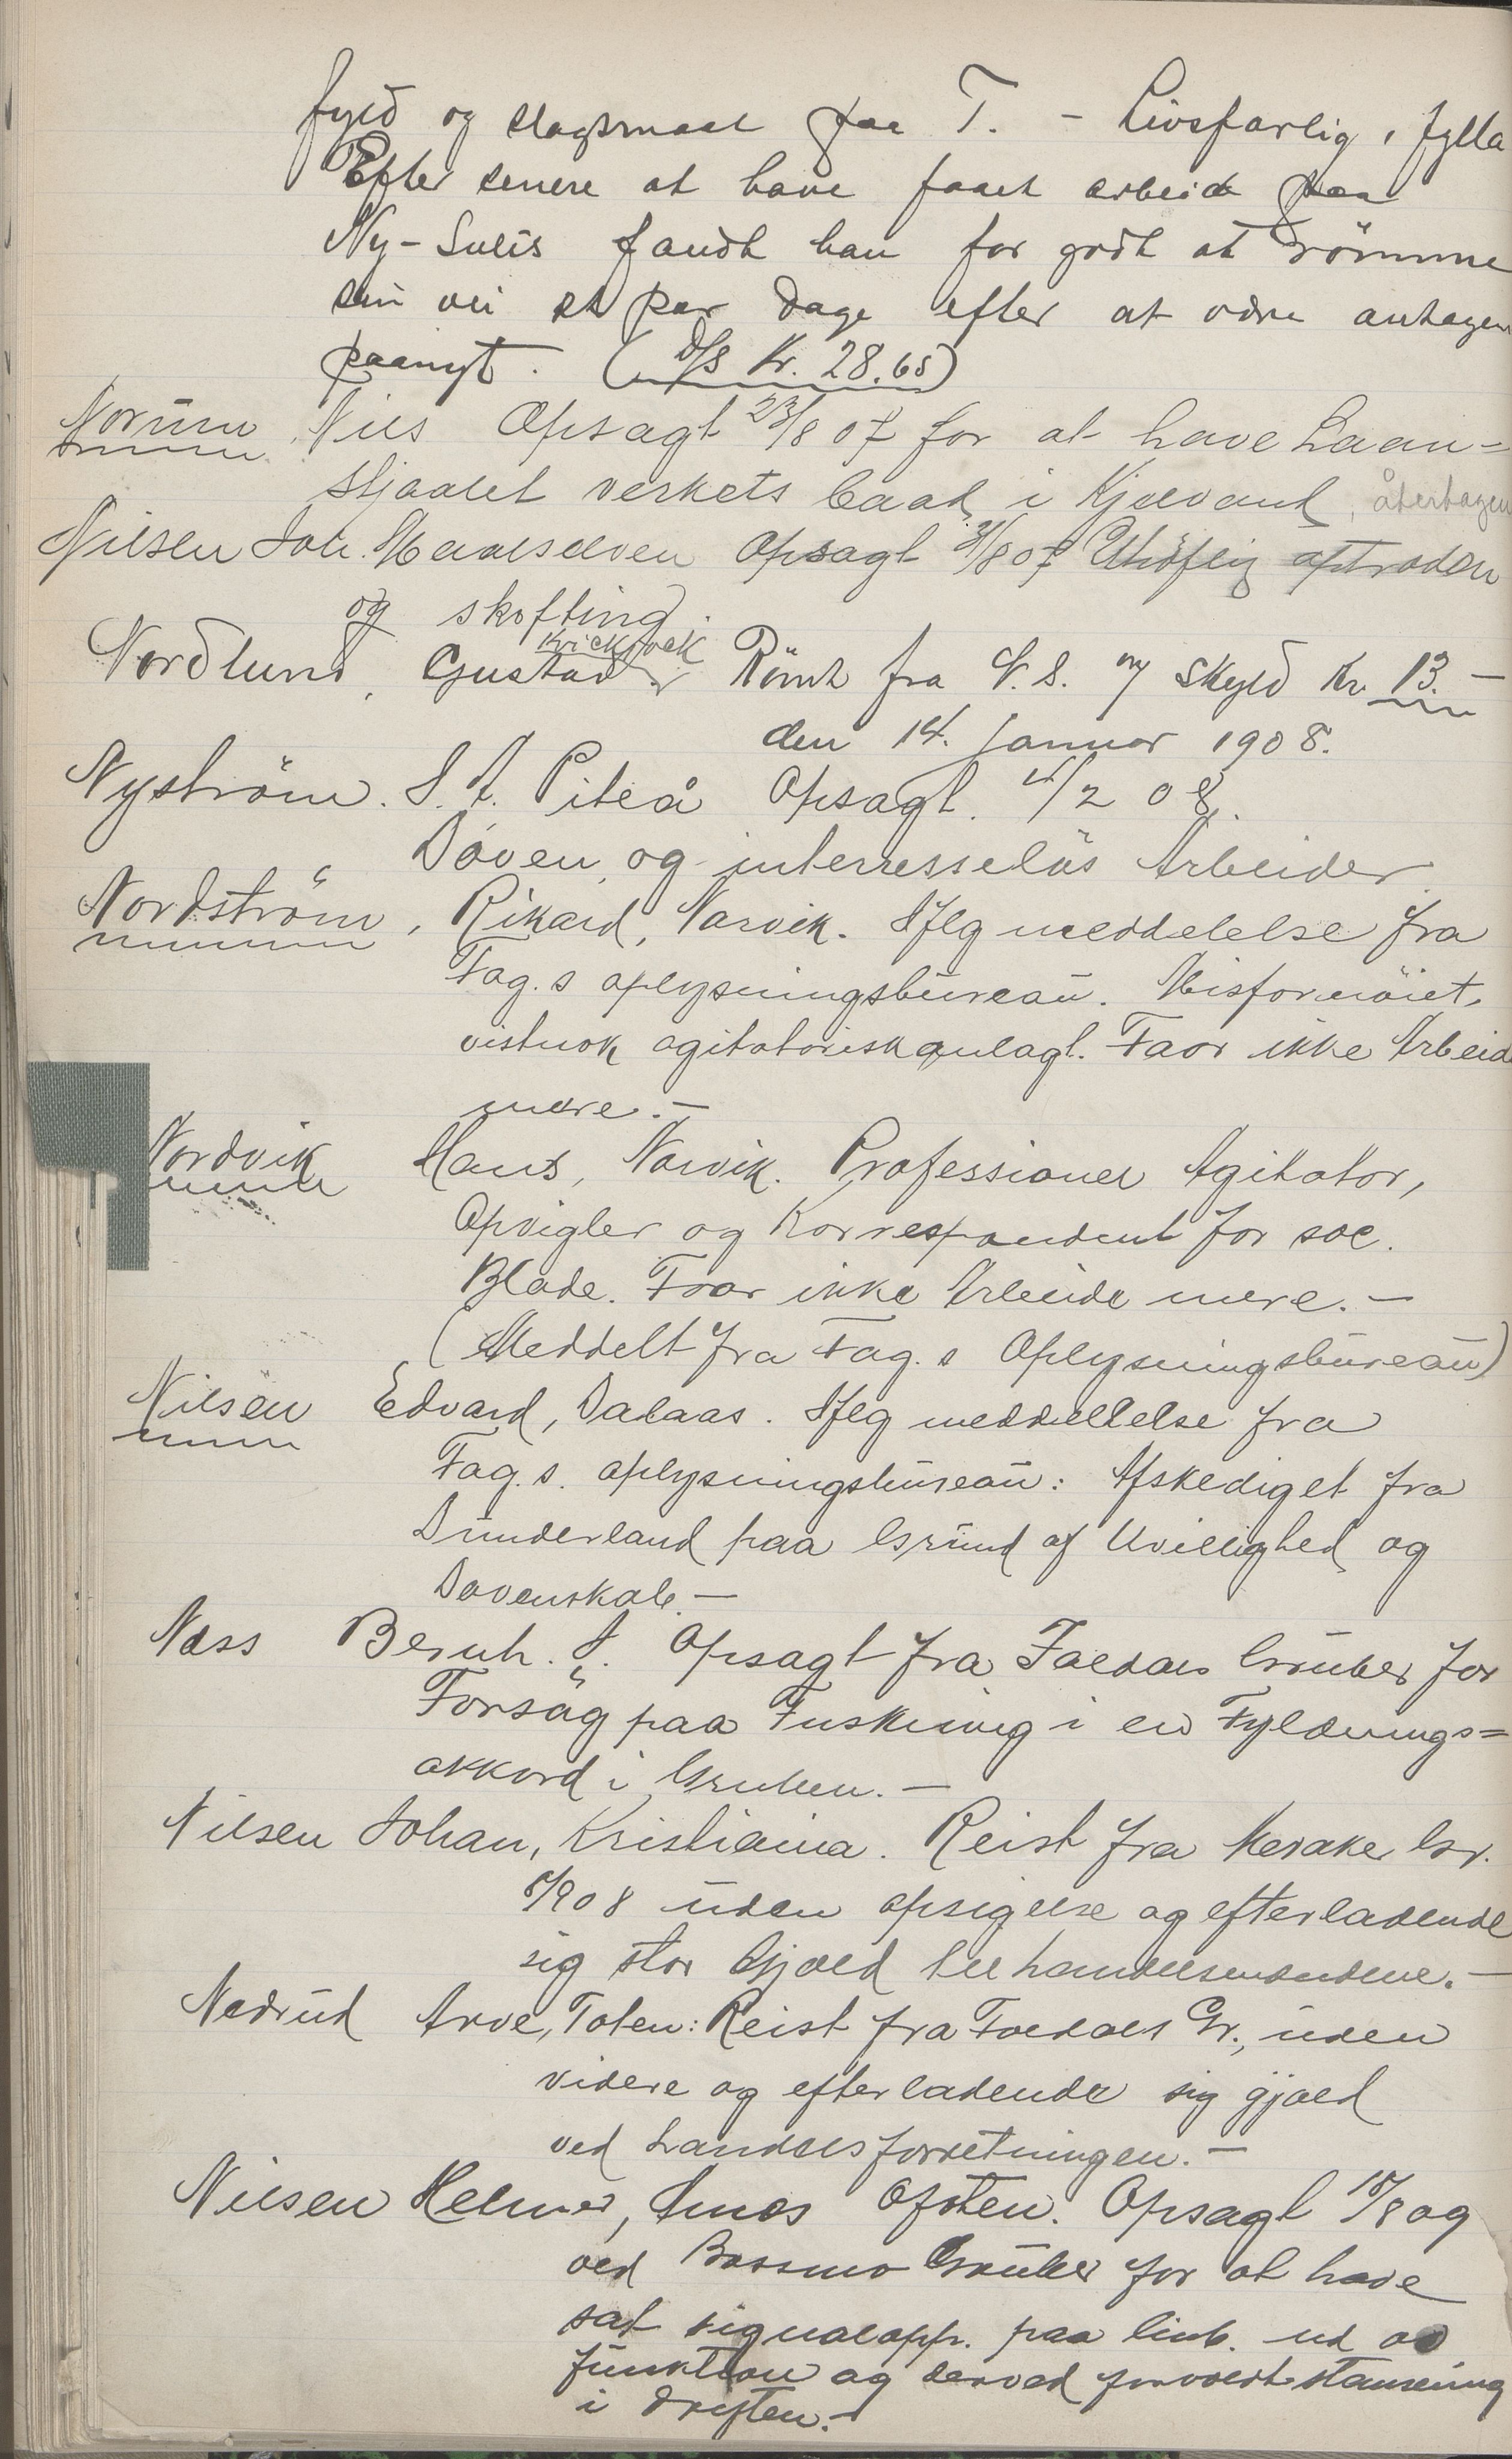 fyld og slagsmaal paa T. - Livsfarlig i fylla
Efter senere at have faaet arbeide paa
Ny-Sulis fandt han for godt at römme
sin vei et par dage efter at være antagen
paanyt. (D/S Kr. 28.65)
Norum, Nils Opsagt 23/8 07 for at have Laan=
stjaalet verkets baad i Kjelvand, återtagen
Nilsen Joh. Maalselven Opsagt 31/8 07 Uhöflig optræden
og skofting.
Kvickjock
Nordlund, Gustav Römt fra N.S. og skyld Kr. 13.-
den 14. Januar 1908.
Nyström. S. A. Piteå Opsagt. 4/2 08.
Doven og interresselös Arbeider
Nordström, Rikard, Narvik. Iflg meddelelse fra
Fag. s oplysningsbureau. Misfornöiet,
vistnok agitatorisk anlagt. Faar ikke Arbeide
mere.-
Nordvik Hans, Narvik. Professionel Agitator,
Opvigler og Korrespondent for soc.
Blade. Faar ikke Arbeide mere.-
(Meddelt fra Fag. s Oplysningsbureau)
Nilsen Edvard, Dalaas. Iflg meddellelse fra
Fag. s. oplysningsbureau: Afskediget fra
Dunderland paa Grund af Uvillighed og
Dovenskab.-
Næss Bernh. A. Opsagt fra Foldals Gruber for
Forsög paa Fuskning i en Fyldnings=
akkord i Gruben.-
Nilsen Johan, Kristiania. Reist fra Meraker Gr.
8/9 08 uden opsigelse og efterladende
sig stor Gjæld til handelsmændene.-
Nedrud Arve, Toten: Reist fra Foldals Gr., uden
videre og efterladende sig gjæld
ved Landhandelsforretningen.-
Nilsen Helmer, Ofoten. Opsagt 18/8 09
ved Bossmo Gruber for at have
sat signalapp. paa linb. ud af
funktion og derved forvoldt stansning
i driften.-